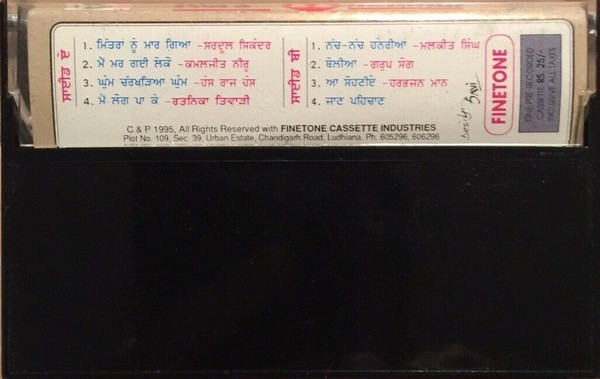 ਸਾਈਡ ਏ
1. ਮਿੱਤਰਾਂ ਨੂੰ ਮਾਰ ਗਿਆ -ਸਰਦੂਲ ਸਿਕੰਦਰ
2. ਮੈਂ ਮਰ ਗਈ ਲੋਕੋ -ਕਮਲਜੀਤ ਨੀਰੂ
3. ਘੁੰਮ ਚੱਰਖੜਿਆ ਘੁੰਮ -ਹੰਸ ਰਾਜ ਹੰਸ
4. ਮੈਂ ਲੋਂਗ ਪਾ ਕੇ -ਰਤਨਿਕਾ ਤਿਵਾੜੀ
ਸਾਈਡ ਬੀ
1. ਨੱਚ-ਨੱਚ ਹਨੇਰੀਆ -ਮਲਕੀਤ ਸਿੰਘ
2. ਬੋਲੀਆ -ਗਰੁਪ ਸੋਂਗ
3. ਆ ਸੋਹਣੀਏ -ਹਰਭਜਨ ਮਾਨ
4. ਜਾਣ ਪਹਿਚਾਣ
C & P 1995, All Rights Reserved with FINETONE CASSETTE INDUSTRIES
Plot No. 109, Sec. 39, Urban Estate, Chandigarh Road, Ludhiana. Ph. 605296, 606296
FINETONE
ONE PRE-RECORDED
CASSETTE RS. 25/-
INCLUSIVE ALL TAXES